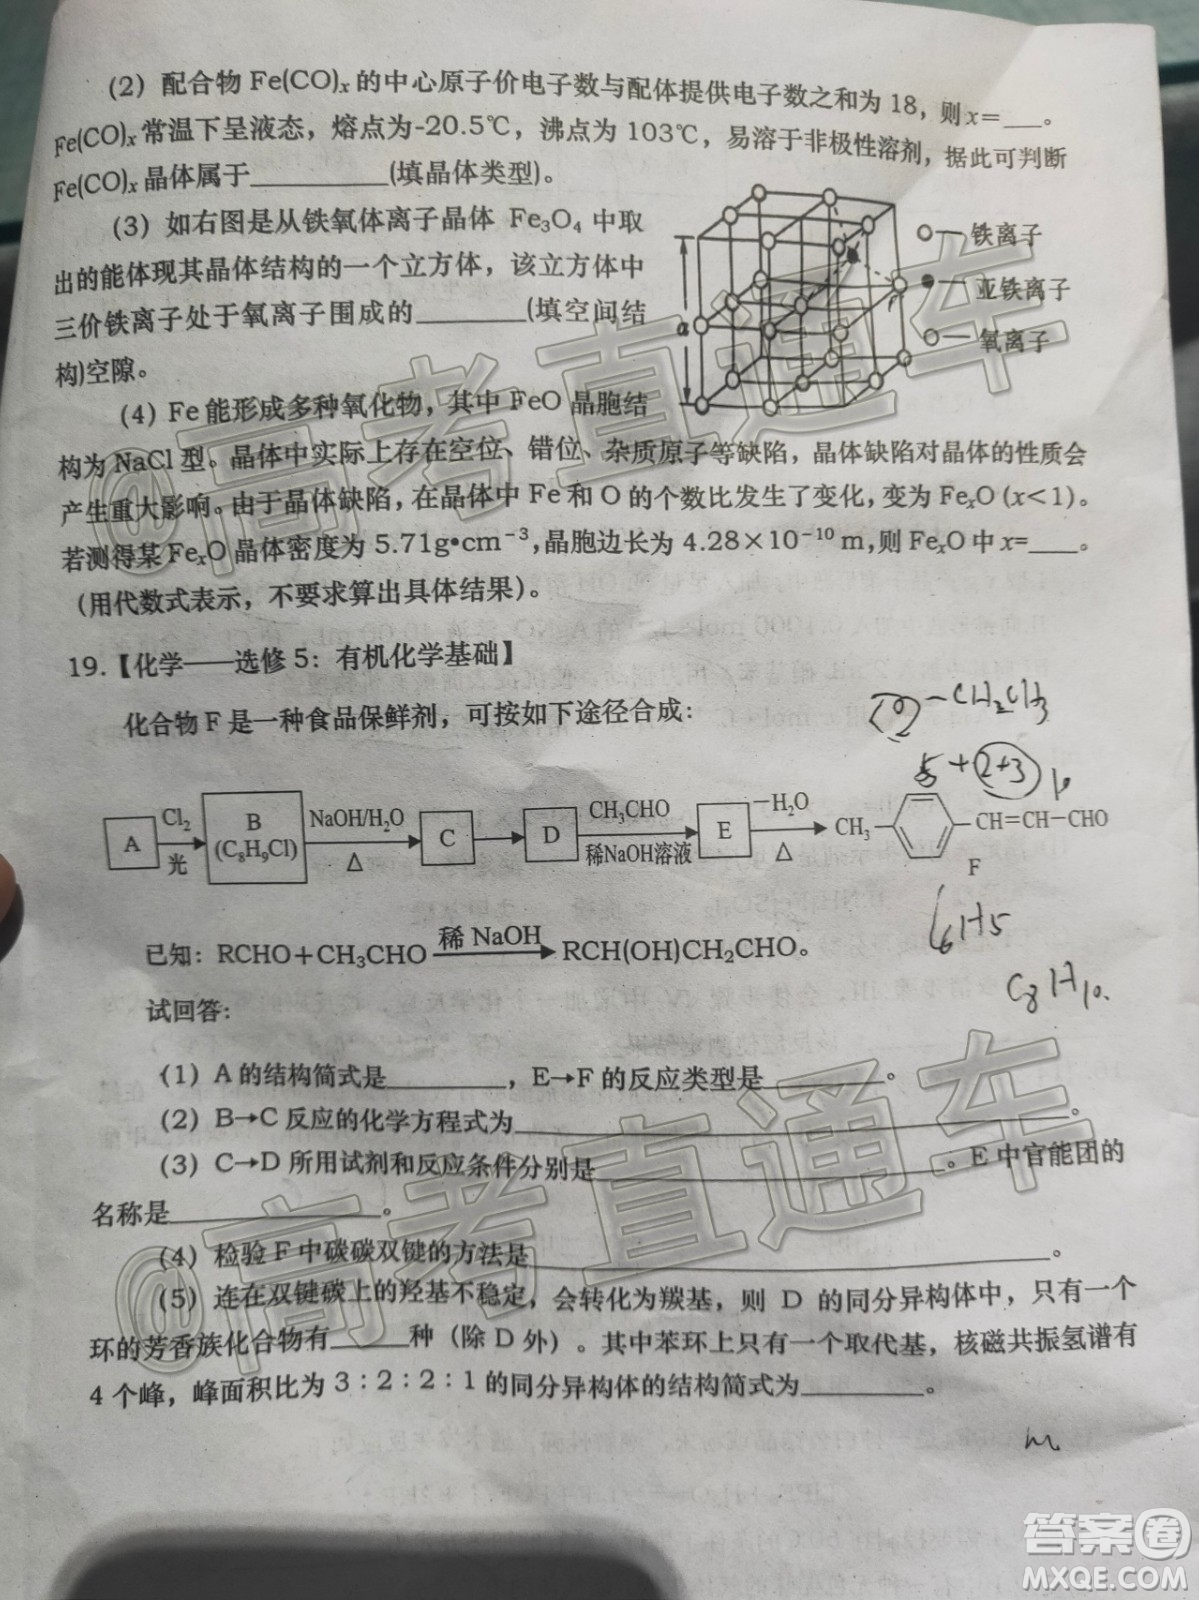 (2) 配合物 Fe(CO)ₓ 的中心原子价电子数与配体提供电子数之和为 18，则 x=___。
Fe(CO)ₓ 常温下呈液态，熔点为-20.5℃，沸点为 103℃，易溶于非极性溶剂，据此可判断
Fe(CO)ₓ 晶体属于__________(填晶体类型)。
(3) 如右图是从铁氧体离子晶体 Fe₃O₄ 中取
出的能体现其晶体结构的一个立方体，该立方体中
三价铁离子处于氧离子围成的________(填空间结
构)空隙。
a
铁离子
亚铁离子
氧离子
(4) Fe 能形成多种氧化物，其中 FeO 晶胞结
构为 NaCl 型。晶体中实际上存在空位、错位、杂质原子等缺陷，晶体缺陷对晶体的性质会
产生重大影响。由于晶体缺陷，在晶体中 Fe 和 O 的个数比发生了变化，变为 FeₓO (x<1)。
若测得某 FeₓO 晶体密度为 5.71g•cm⁻³，晶胞边长为 4.28×10⁻¹⁰ m，则 FeₓO 中 x=____。
(用代数式表示，不要求算出具体结果)。
19.【化学——选修 5：有机化学基础】
化合物 F 是一种食品保鲜剂，可按如下途径合成：
-CH₂CH₃
5+2+3
A
Cl₂
光
B
(C₈H₉Cl)
NaOH/H₂O
△
C
D
CH₃CHO
稀NaOH溶液
E
−H₂O
△
CH₃
CH=CH-CHO
F
C₆H₅
C₈H₁₀.
已知：RCHO+CH₃CHO 稀 NaOH RCH(OH)CH₂CHO。
试回答：
(1) A 的结构简式是________，E→F 的反应类型是________。
(2) B→C 反应的化学方程式为________________________________。
(3) C→D 所用试剂和反应条件分别是____________________。E 中官能团的
名称是______________。
(4) 检验 F 中碳碳双键的方法是______________________________。
(5) 连在双键碳上的羟基不稳定，会转化为羰基，则 D 的同分异构体中，只有一个
环的芳香族化合物有_____种（除 D 外）。其中苯环上只有一个取代基，核磁共振氢谱有
4 个峰，峰面积比为 3∶2∶2∶1 的同分异构体的结构简式为________。
@高考直通车
@高考直通车
答案圈
MXQE.COM